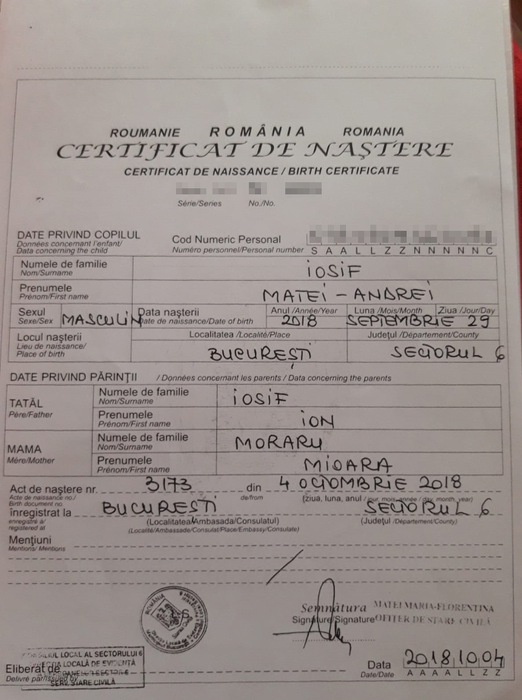 ROUMANIE ROMÂNIA ROMANIA
CERTIFICAT DE NAȘTERE
CERTIFICAT DE NAISSANCE / BIRTH CERTIFICATE
Série/Series No./No.
DATE PRIVIND COPILUL
Données concernant l'enfant/
Data concerning the child
Cod Numeric Personal
Numéro personnel/Personal number S A A L L Z Z N N N N N C
Numele de familie
Nom/Surname
IOSIF
Prenumele
Prénom/First name
MATEI-ANDREI
Sexul
Sexe/Sex
MASCULIN
Data nașterii
Date de naissance/Date of birth
Anul /Année/Year
2018
Luna /Mois/Month
SEPTEMBRIE
Ziua /Jour/Day
29
Locul nașterii
Lieu de naissance/
Place of birth
Localitatea /Localité/Place
BUCUREȘTI
Județul /Département/County
SECTORUL 6
DATE PRIVIND PĂRINȚII / Données concernant les parents / Data concerning the parents
TATĂL
Père/Father
Numele de familie
Nom/Surname
IOSIF
Prenumele
Prénom/First name
ION
MAMA
Mère/Mother
Numele de familie
Nom/Surname
MORARU
Prenumele
Prénom/First name
MIOARA
Act de naștere nr. 3173 din 4 OCTOMBRIE 2018
Acte de naissance no./
Birth document no.
de/from
(ziua, luna, anul /
înregistrat la BUCUREȘTI SECTORUL 6
enregistré à/
registered at
(Localitatea/Ambasada/Consulatul)
(Localité/Ambassade/Consulat/Place/Embassy/Consulate)
(Județul /Département/County)
Mențiuni
Mentions/ Mentions
Semnătura MATEI MARIA-FLORENTINA
Signature/Signature OFIȚER DE STARE CIVILĂ
LOCAL AL SECTORULUI 6
LOCALĂ DE EVIDENȚĂ
STARE CIVILĂ
Eliberat de
Data 2018.10.04
Date/Date A A A A L L Z Z